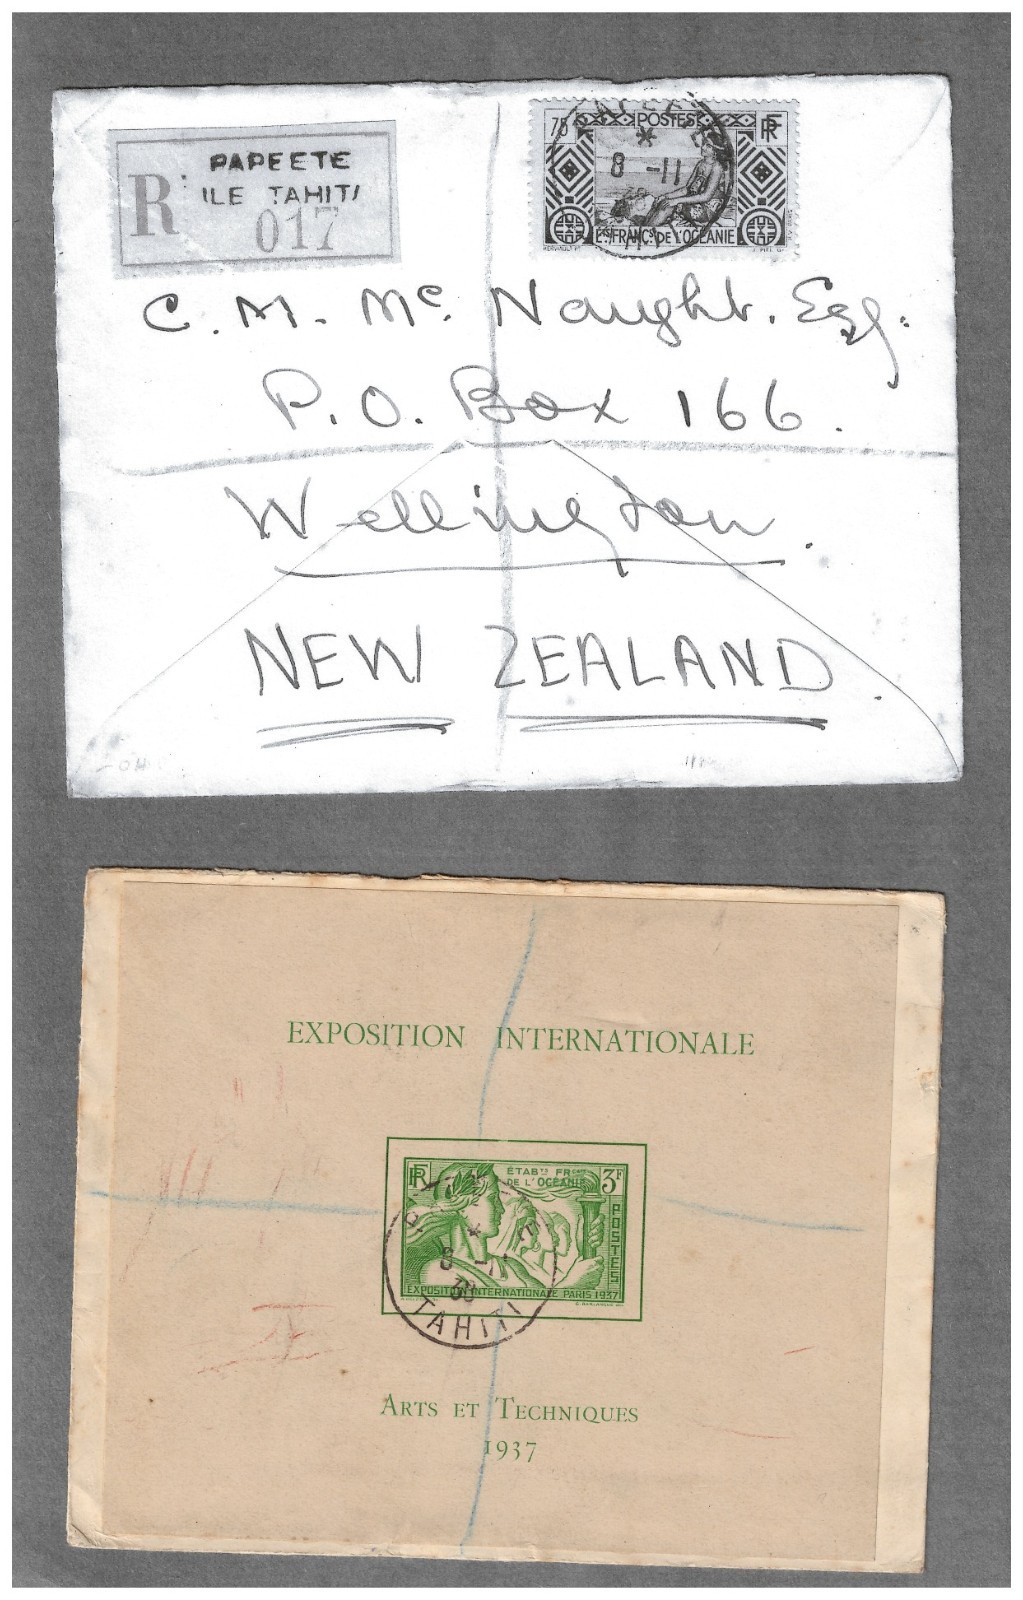 PAPEETE
R ILE TAHITI
017
75 POSTES RF
8 -11
38
ETS FRANCS DE L'OCÉANIE
C. M. Mc. Naught. Esq.
P.O. Box 166.
Wellington.
NEW ZEALAND.
EXPOSITION INTERNATIONALE
RF ÉTABTS FRCAIS 3F
DE L'OCÉANIE
POSTES
8 -11
38
EXPOSITION INTERNATIONALE PARIS 1937
TAHITI
ARTS ET TECHNIQUES
1937